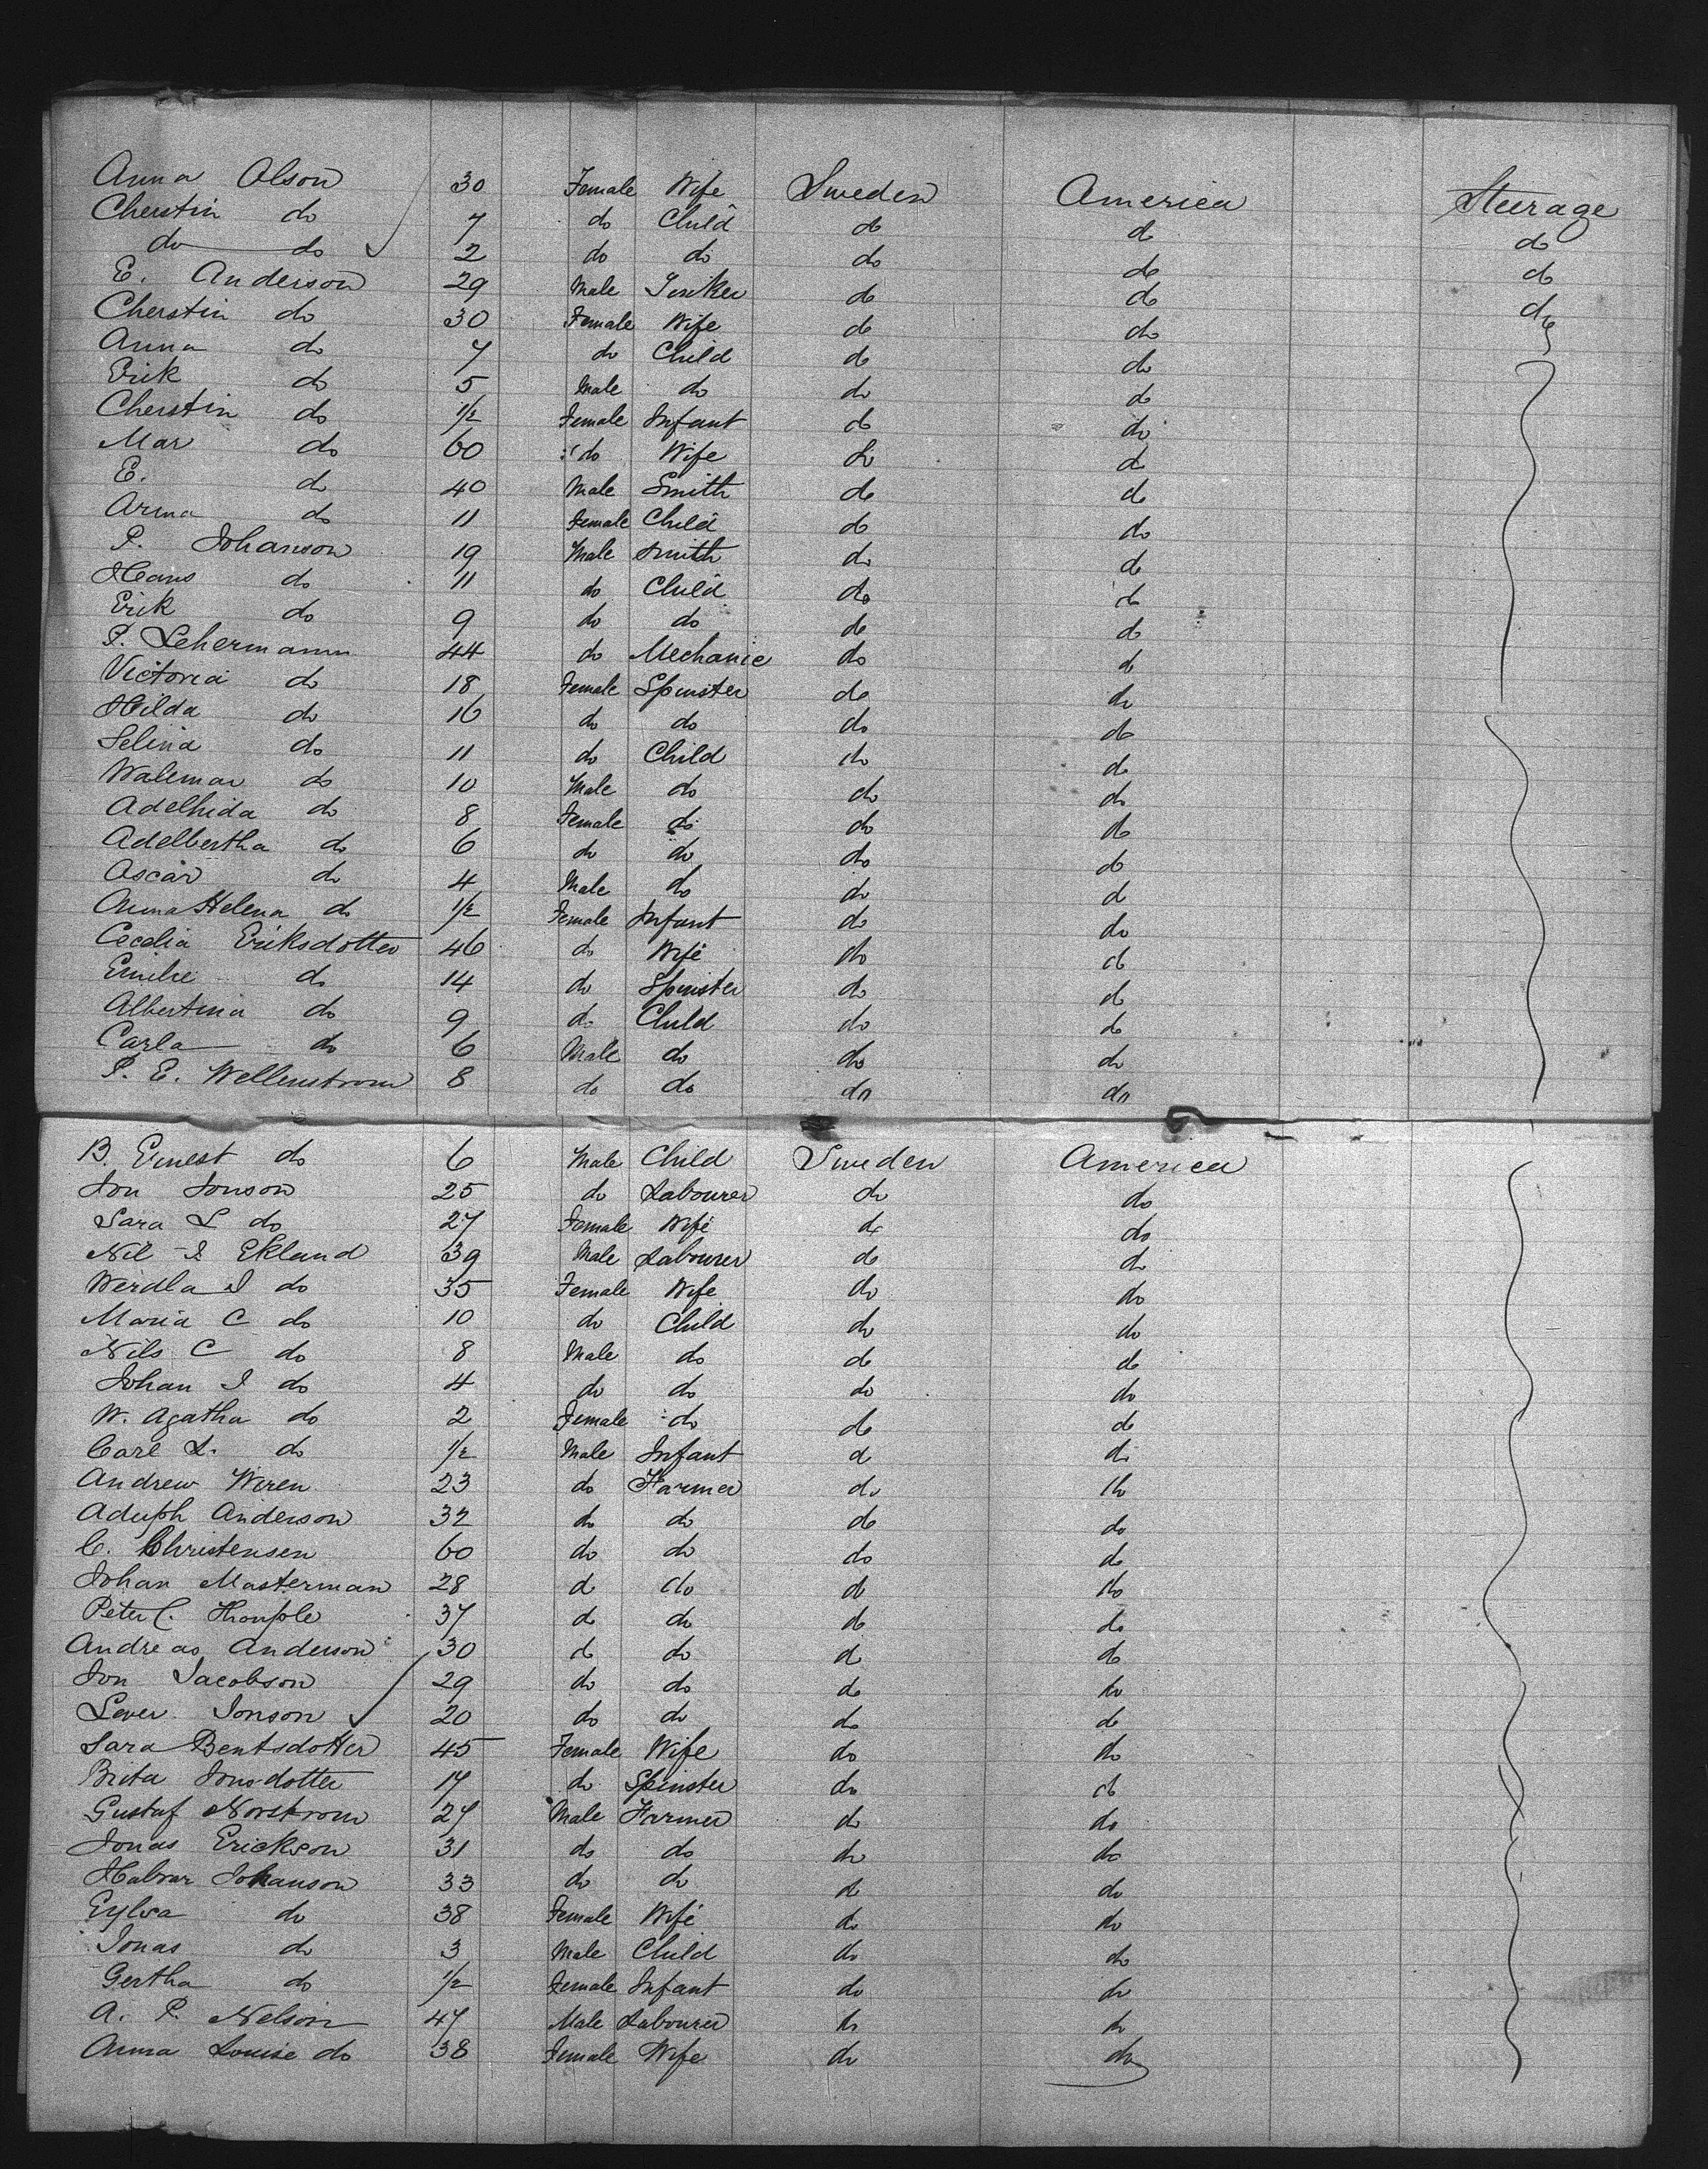 Anna Olson 30 Female Wife Sweden America Steerage
Cherstin do 7 do Child do do do
do do 2 do do do do do
E. Anderson 29 Male Tinker do do do
Cherstin do 30 Female Wife do do
Anna do 7 do Child do do
Erik do 5 Male do do do
Cherstin do 1/2 Female Infant do do
Mar do 60 do Wife do do
E. do 40 Male Smith do do
Anna do 11 Female Child do do
P. Johanson 19 Male Smith do do
Hans do 11 do Child do do
Erik do 9 do do do do
P. Lehermann 44 do Mechanic do do
Victoria do 18 Female Spinster do do
Hilda do 16 do do do do
Selina do 11 do Child do do
Walemar do 10 Male do do do
Adelhida do 8 Female do do do
Adelbertha do 6 do do do do
Ascar do 4 Male do do do
Anna Helena do 1/2 Female Infant do do
Cecelia Eriksdotter 46 do Wife do do
Emilie do 14 do Spinster do do
Albertina do 9 do Child do do
Carla do 6 Male do do do
P. E. Wellenstrom 8 do do do do
B. Ernest do 6 Male Child Sweden America
Jon Jonson 25 do Labourer do do
Sara L do 27 Female Wife do do
Nil I Eklund 39 Male Labourer do do
Werdla I do 35 Female Wife do do
Maria C do 10 do Child do do
Nils C do 8 Male do do do
Johan I do 4 do do do do
W. Agatha do 2 Female do do do
Carl L. do 1/2 Male Infant do do
Andrew Wiren 23 do Farmer do do
Adolph Anderson 32 do do do do
C. Christensen 60 do do do do
Johan Masterman 28 do do do do
Peter C. 37 do do do do
Andreas Anderson 30 do do do do
Jon Jacobson 29 do do do do
Sever Jonson 20 do do do do
Sara Bentsdotter 45 Female Wife do do
Brita Jonsdotter 17 do Spinster do do
Gustaf Norstrom 27 Male Farmer do do
Jonas Erickson 31 do do do do
Halvar Johanson 33 do do do do
Eylsa do 38 Female Wife do do
Jonas do 3 Male Child do do
Gertha do 1/2 Female Infant do do
A. P. Nelson 47 Male Labourer do do
Anna Louise do 38 Female Wife do do